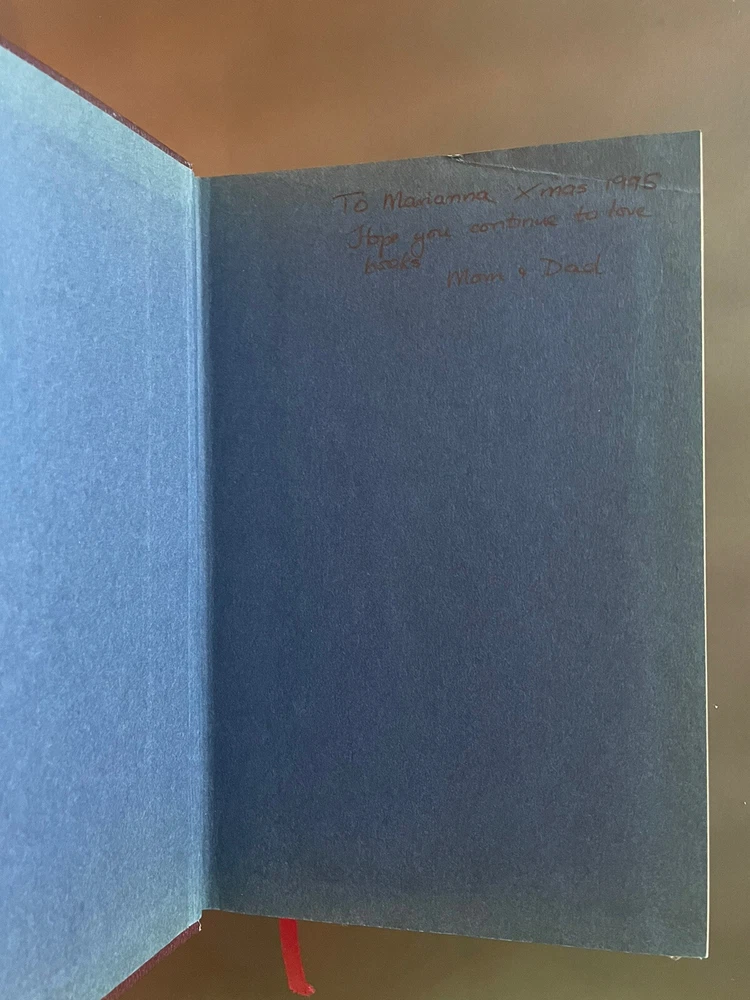 To Marianna, Xmas 1995
Hope you continue to love
books
Mom & Dad